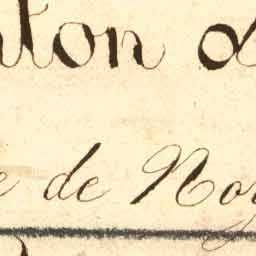 nton d
e de Noy